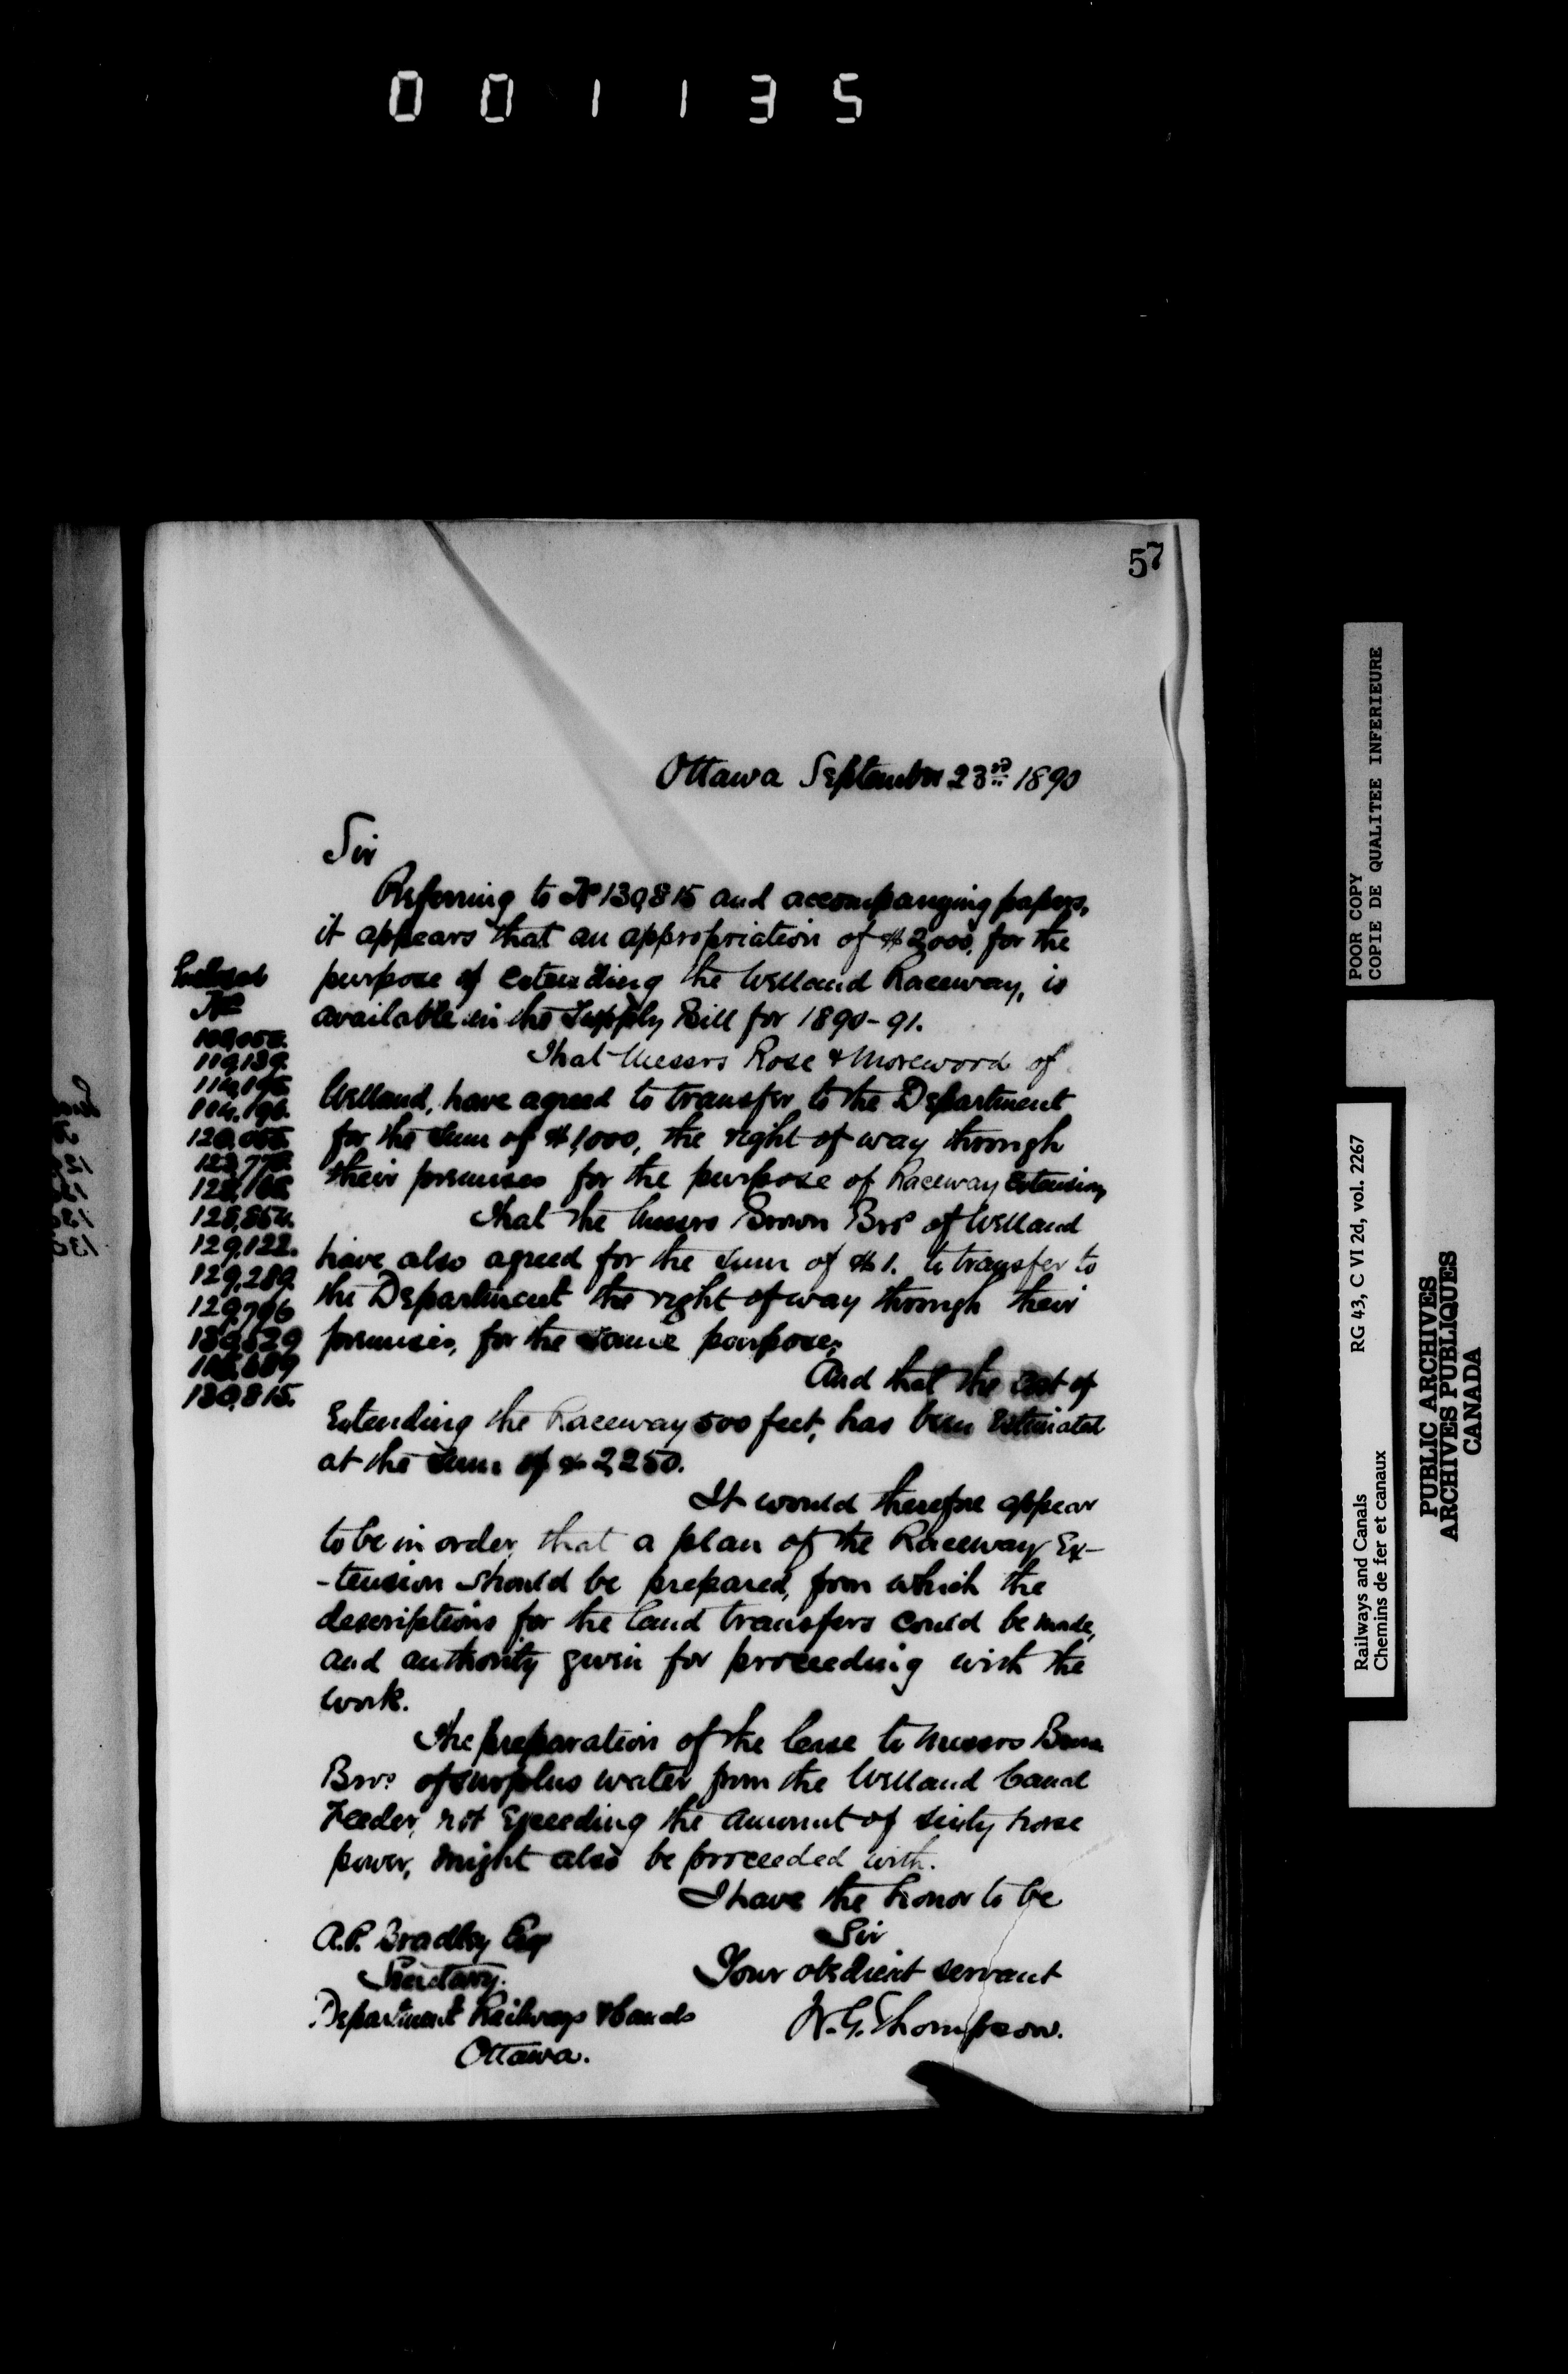 001135
57
Ottawa September 23rd 1890
Sir
Referring to No 130,815 and accompanying papers,
it appears that an appropriation of $2,000, for the
purpose of extending the Welland Raceway, is
available in the Supply Bill for 1890-91.
That Messrs Rose & Morewood of
Welland, have agreed to transfer to the Department
for the sum of $1,000, the right of way through
their premises for the purpose of Raceway extension,
That the Messrs Brown Bros of Welland
have also agreed for the sum of $1. to transfer to
the Department the right of way through their
premises, for the same purpose;
And that the cost of
Extending the Raceway 500 feet, has been Estimated
at the sum of $2,250.
It would therefore appear
to be in order, that a plan of the Raceway Ex-
-tension should be prepared, from which the
descriptions for the land transfers could be made,
and authority given for proceeding with the
work.
The preparation of the lease to Messrs
Bros of surplus water from the Welland Canal
Feeder, not Exceeding the amount of sixty horse
power, might also be proceeded with.
I have the honor to be
Sir
Your obedient servant
W.G. Thompson.
A.P. Bradley Esq
Secretary.
Department Railways & Canals
Ottawa.
Inclosed
Nos
119,139.
128,864.
129,122.
129,289.
129,796
130,815.
POOR COPY
COPIE DE QUALITEE INFERIEURE
Railways and Canals RG 43, C VI 2d, vol. 2267
Chemins de fer et canaux
PUBLIC ARCHIVES
ARCHIVES PUBLIQUES
CANADA